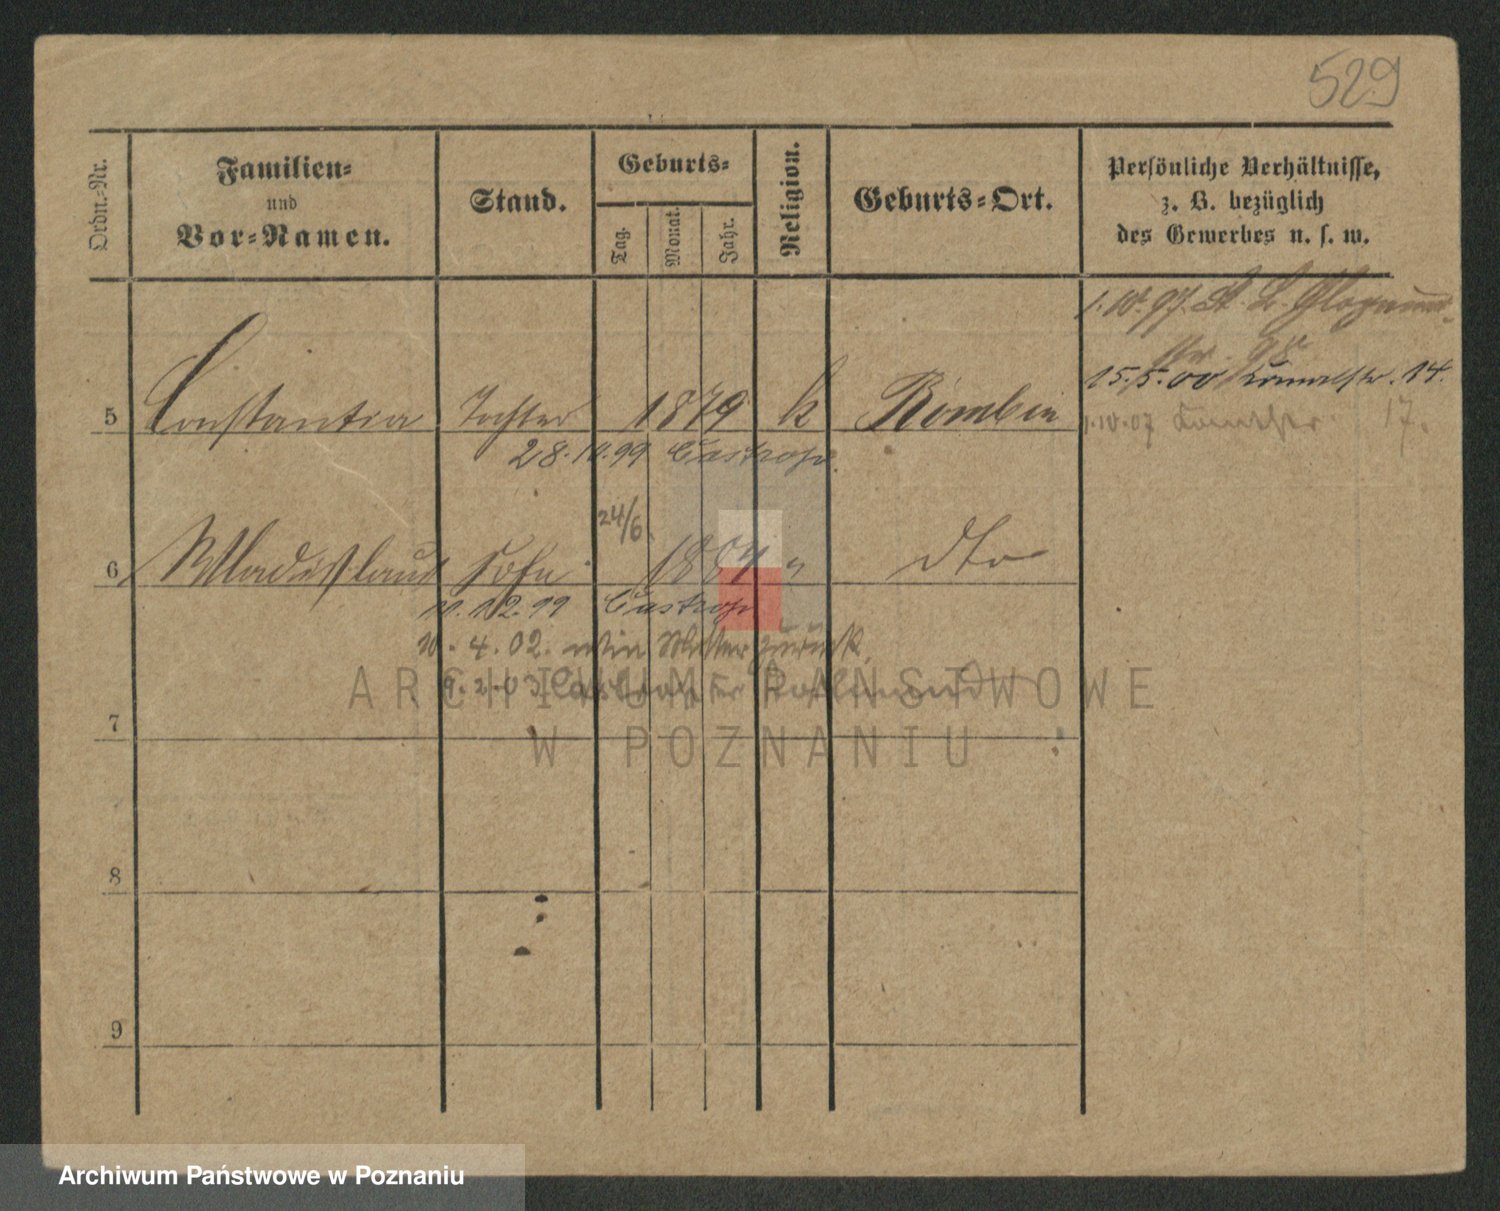 529
Ordn.-Nr.
Familien-
und
Vor-Namen.
Stand.
Geburts-
Tag.
Monat.
Jahr.
Religion.
Geburts-Ort.
Persönliche Verhältnisse,
z. B. bezüglich
des Gewerbes u. s. w.
1.10.97. St. L.
15.5.00 14.
5 Constantia Tochter 1879 k Rombin
1.10.07 17.
28.10.99 Castrop.
24/6.
6 Wladislaus Sohn 1884 " dto
11.12.99 Castrop
4.02. zurück.
9.2.03 Castrop
7
8
9
ARCHIWUM PAŃSTWOWE
W POZNANIU
Archiwum Państwowe w Poznaniu